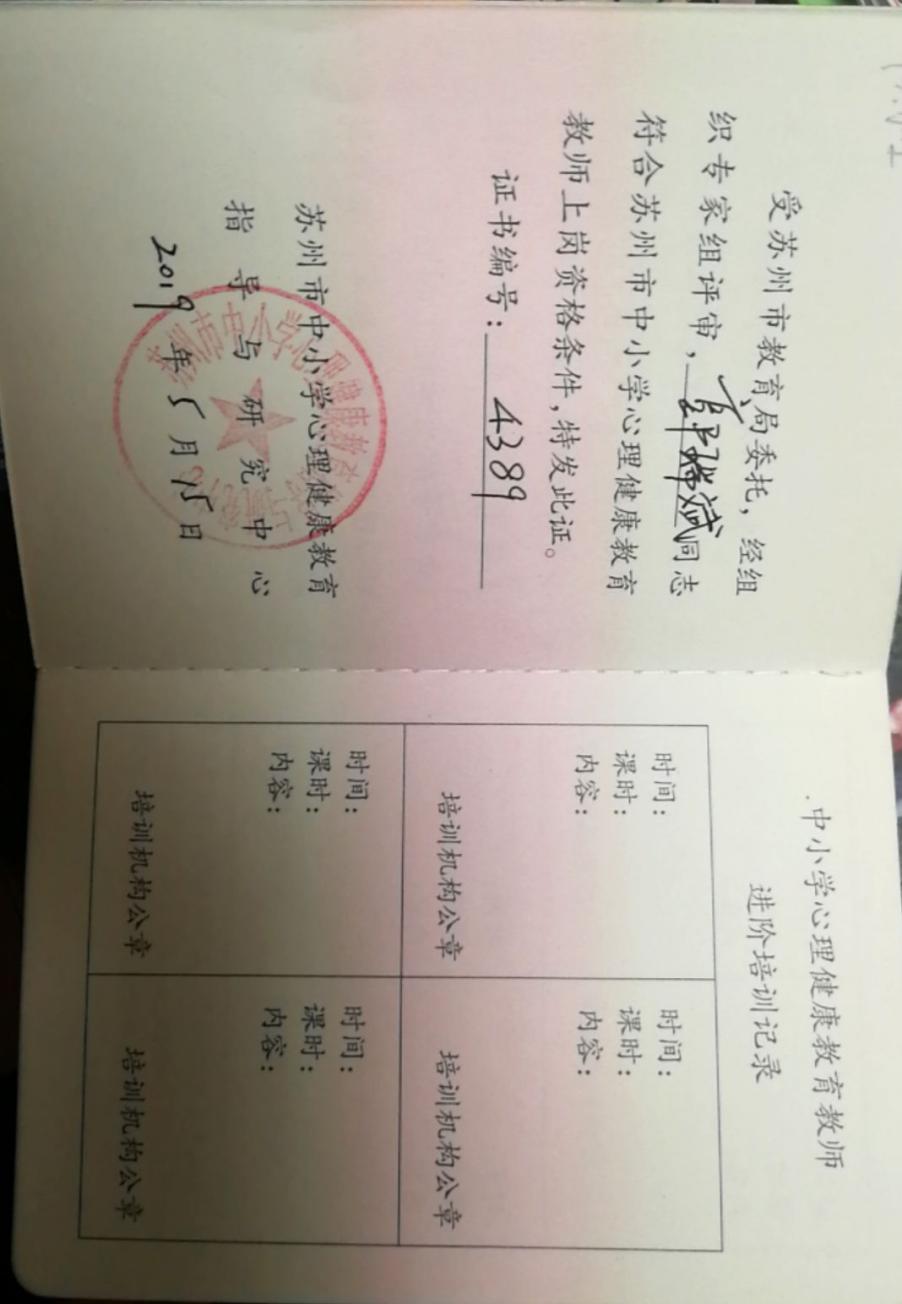 受苏州市教育局委托，经组
织专家组评审，同志
符合苏州市中小学心理健康教育
教师上岗资格条件，特发此证。
证书编号：4389
苏州市中小学心理健康教育
指导与研究中心
2019年5月15日
中小学心理健康教育教师
进阶培训记录
时间：
课时：
内容：
培训机构公章
时间：
课时：
内容：
培训机构公章
时间：
课时：
内容：
培训机构公章
时间：
课时：
内容：
培训机构公章